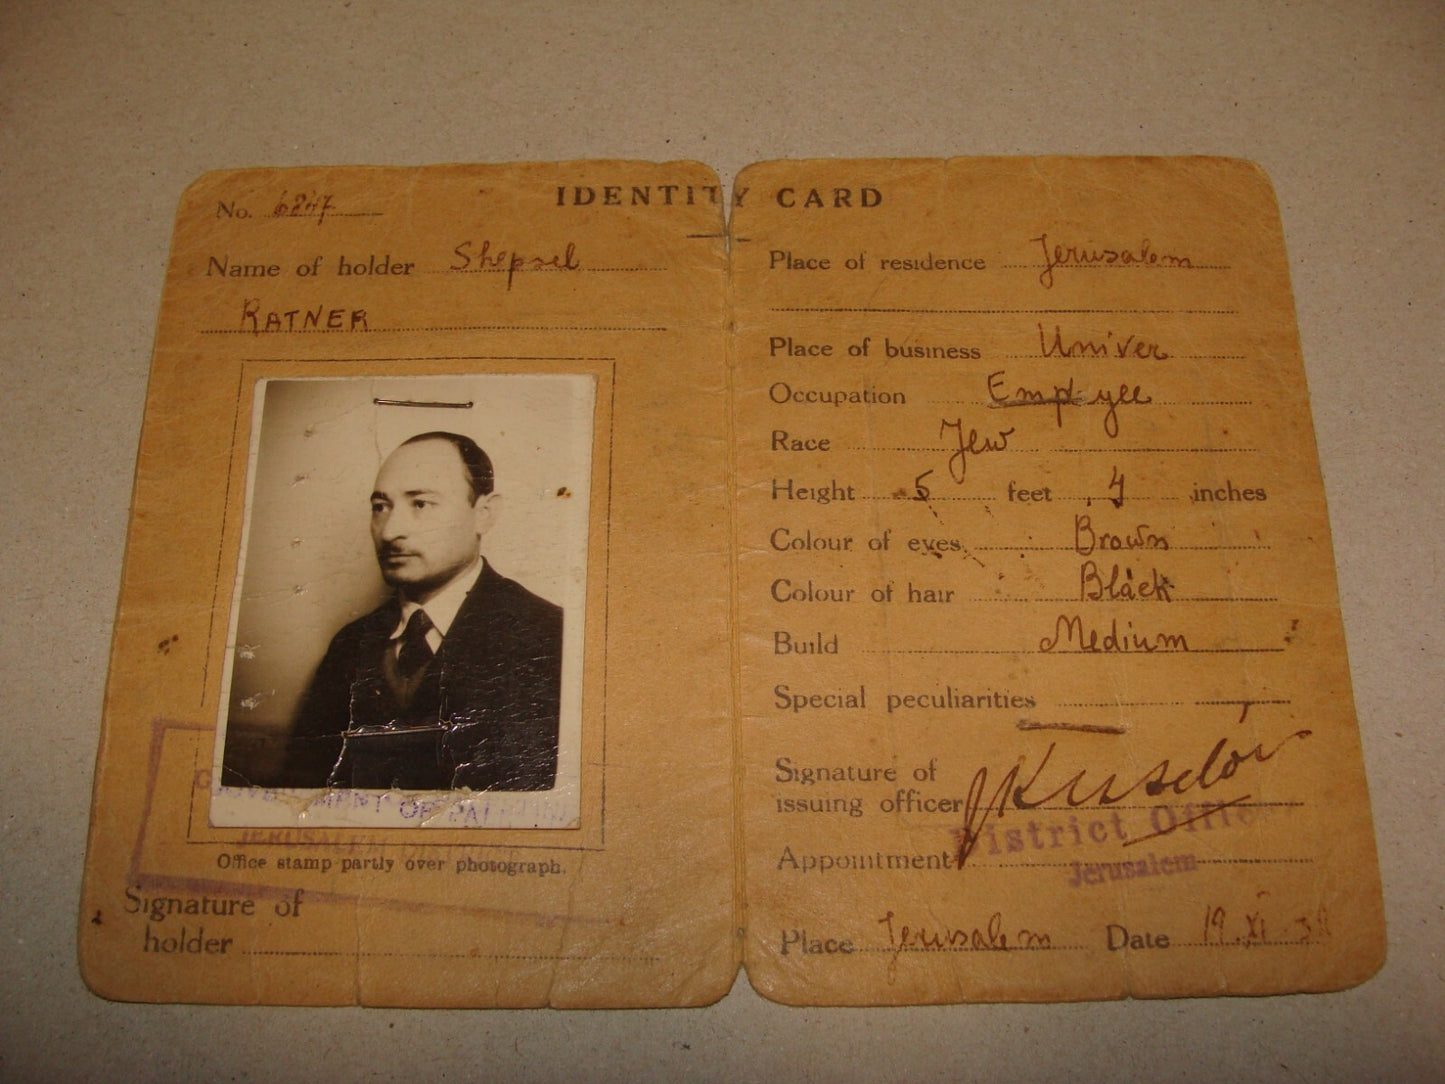 IDENTITY CARD
No. 6847
Name of holder Shepsel
RATNER
GOVERNMENT OF PALESTINE
JERUSALEM DISTRICT
Office stamp partly over photograph.
Signature of
holder
Place of residence Jerusalem
Place of business Univer
Occupation Employee
Race Jew
Height 5 feet 4 inches
Colour of eyes Brown
Colour of hair Black
Build Medium
Special peculiarities
Signature of
issuing officer
District Office
Appointment
Jerusalem
Place Jerusalem Date 19.XI.38